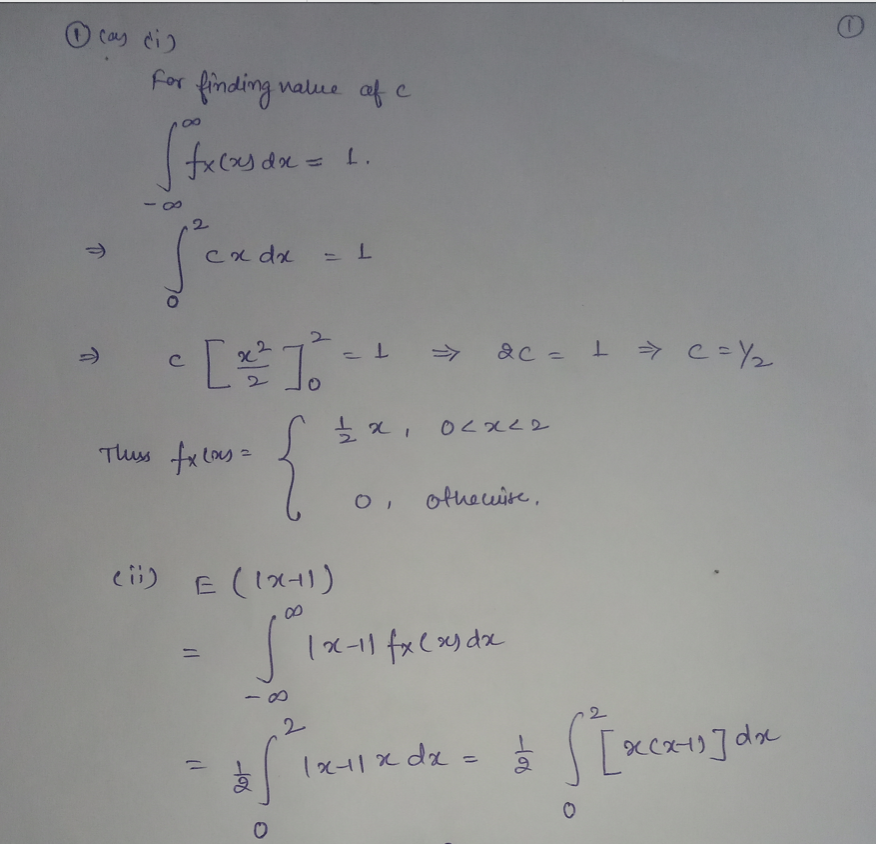 ① (a) (i) ①
For finding value of c
∫_{-∞}^{∞} fx(x) dx = 1.
⇒ ∫_{0}^{2} cx dx = 1
⇒ c [x²/2]_{0}^{2} = 1 ⇒ 2c = 1 ⇒ c = 1/2
Thus fx(x) = { 1/2 x, 0<x<2
0, otherwise.
(ii) E(|x-1|)
= ∫_{-∞}^{∞} |x-1| fx(x) dx
= 1/2 ∫_{0}^{2} |x-1| x dx = 1/2 ∫_{0}^{2} [x(x-1)] dx